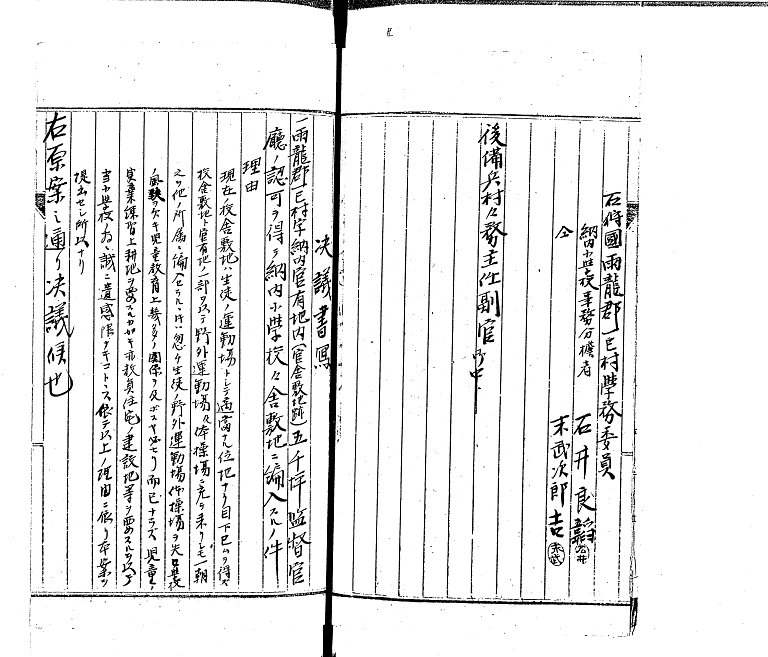 石狩國雨龍郡一已村學務委員
納内小學校事務分擔者
石井良
仝
末武次郎吉
後備兵村々務主任副官 御中
決議書寫
一雨龍郡一已村字納内官有地内(官舎敷地跡)五千坪監督官
廳ノ認可ヲ得テ納内小學校々舎敷地ニ編入スルノ件
理由
現在ノ校舎敷地ハ生徒ノ運動場トシテ適當スル位地ナリ目下已ムヲ得ズ
校舎敷地ト官有地ノ一部ヲ以テ野外運動場及体操場ニ充テ来リシモ一朝
之ヲ他ノ所属ニ編入セラルヽ時ハ忽チ生徒ノ野外運動場体操場ヲ失
ヲ欠キ児童教育上 ノ関係ヲ及ボスヤ必セリ而已ナラズ児童ノ
實業練習上耕地ヲ要スル 亦教員住宅ノ建設地等ヲ要スルヲ以テ
當小學校為ニ誠ニ遺感 トス依テ以上ノ理由ニ依リ本案ヲ
提出セシ所以ナリ
右原案之通リ決議候也